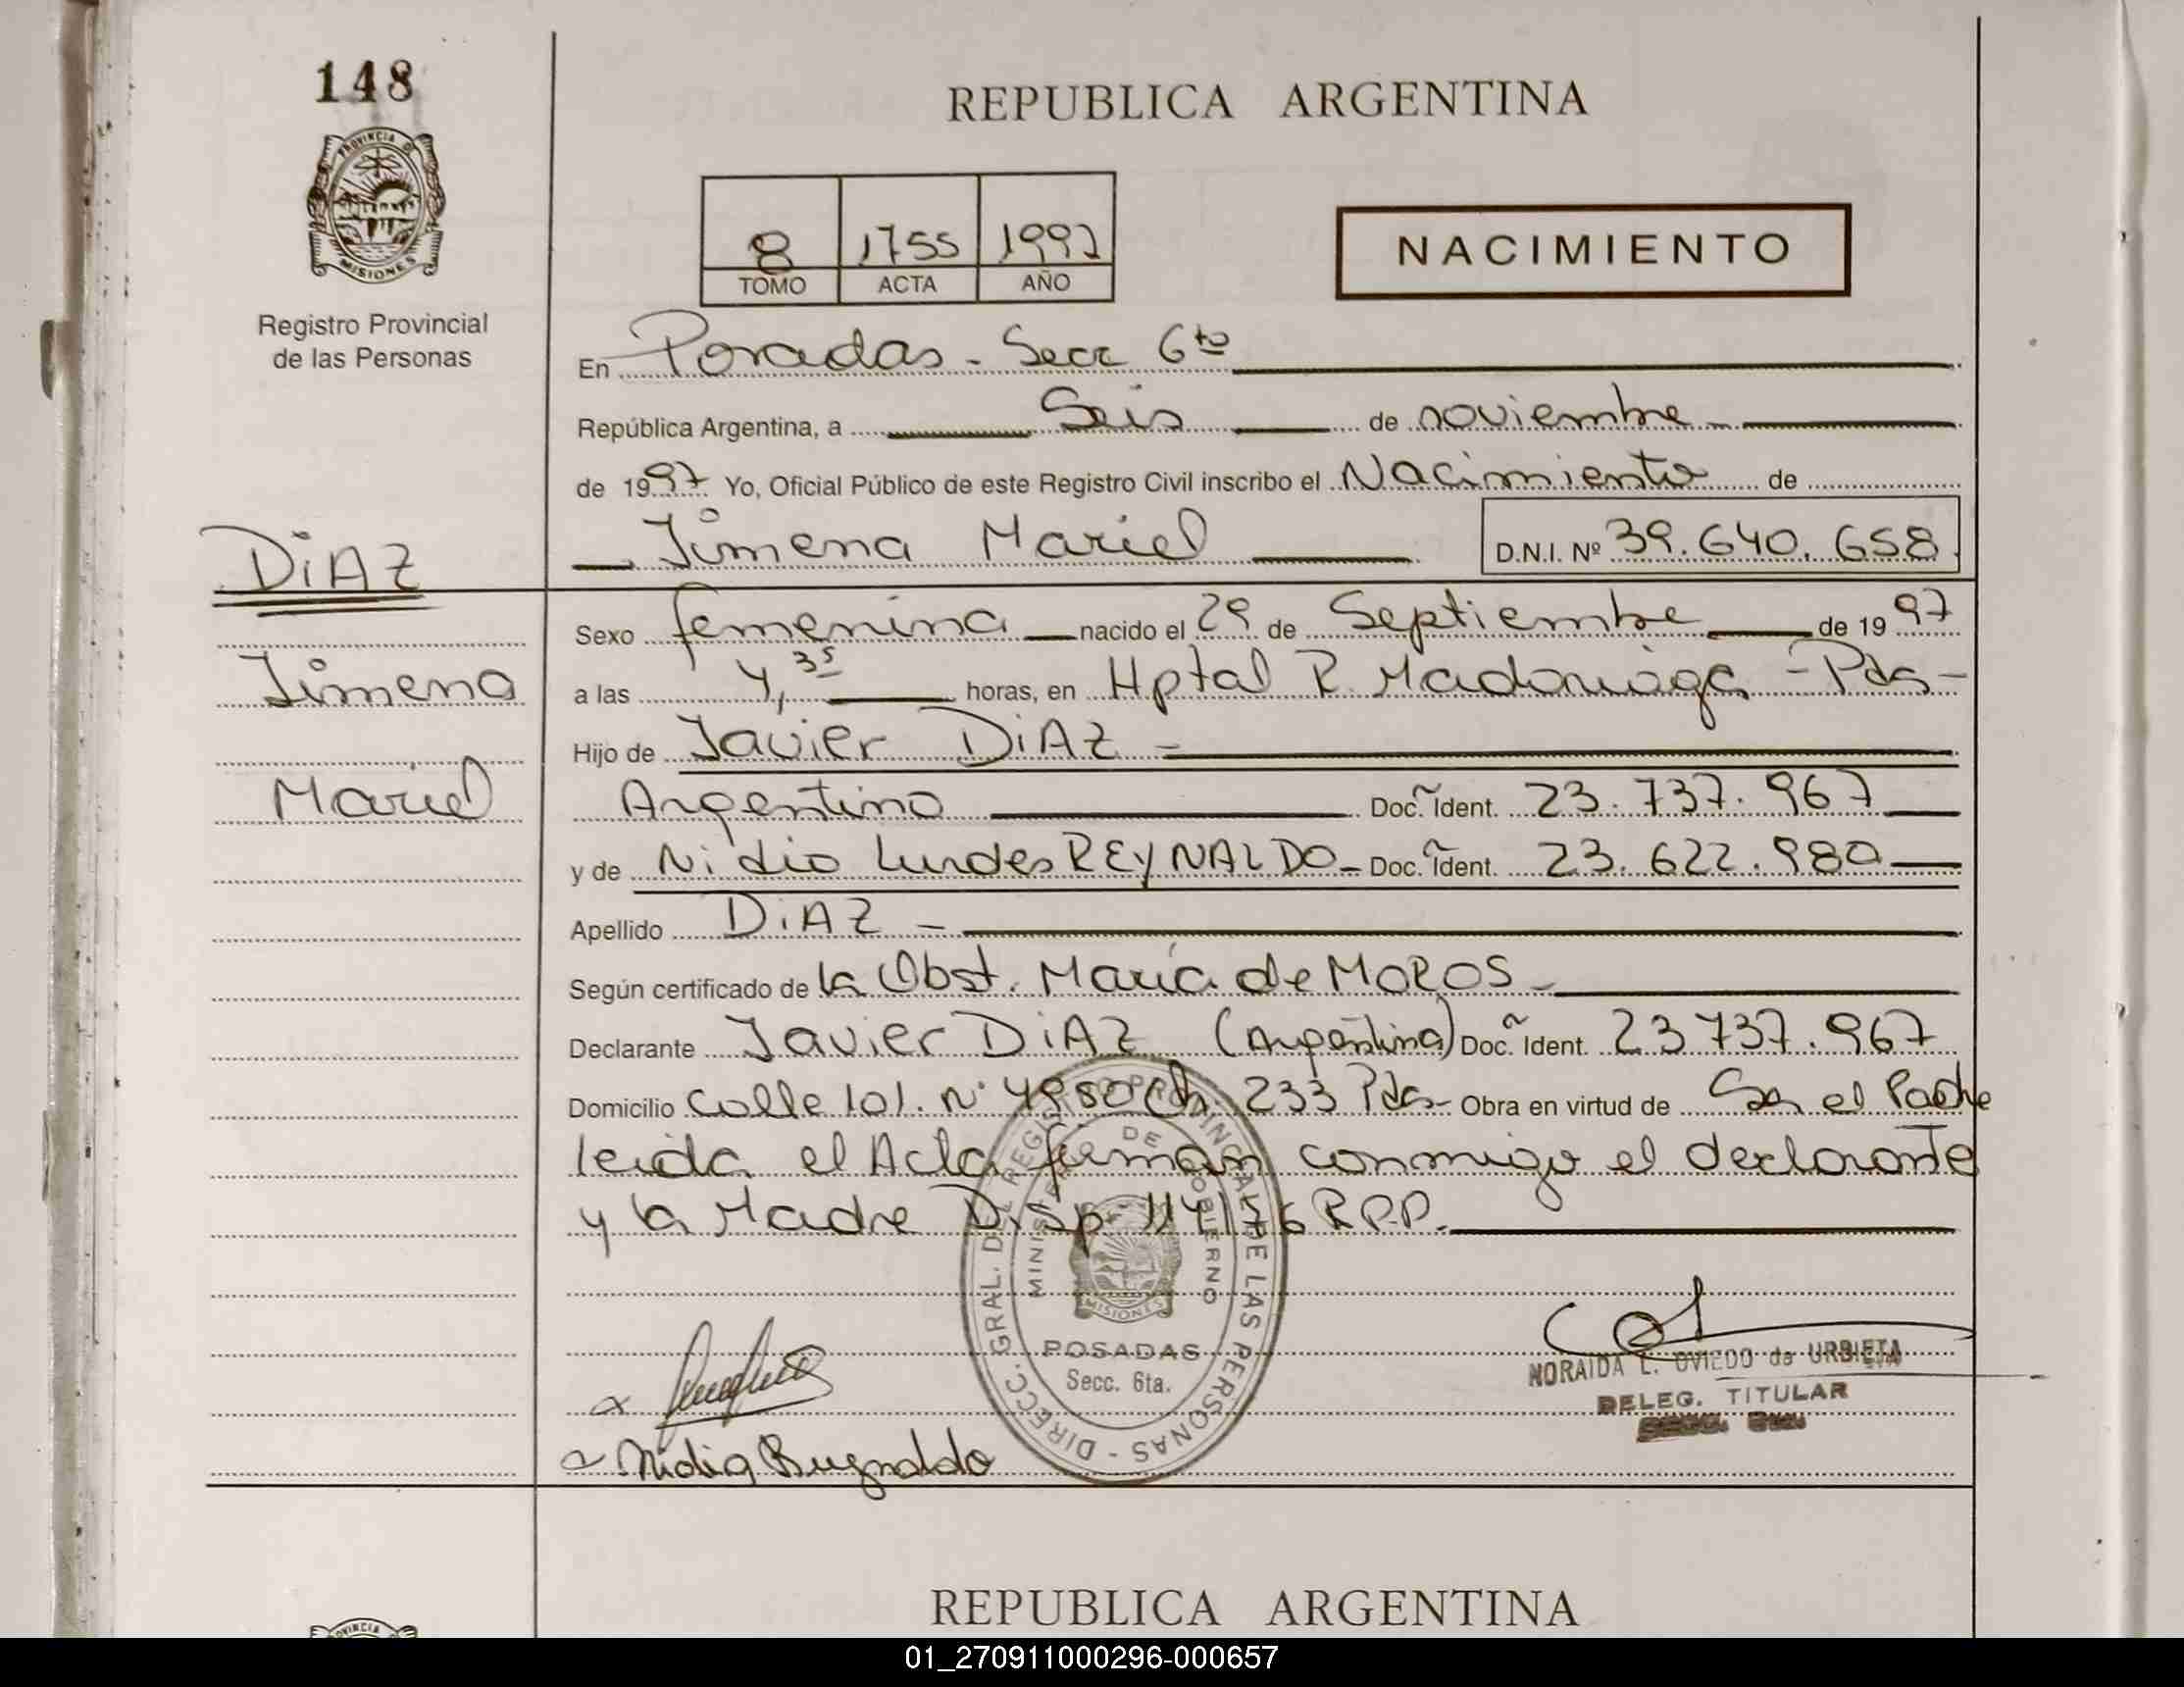 148
PROVINCIA DE
MISIONES
Registro Provincial
de las Personas
REPUBLICA ARGENTINA
8 1755 1997
TOMO ACTA AÑO
NACIMIENTO
En Posadas - Secc 6ta
República Argentina, a Seis de noviembre
de 1997 Yo, Oficial Público de este Registro Civil inscribo el Nacimiento de
Jimena Mariel D.N.I. Nº 39.640.658
DiAZ
Jimena
Mariel
Sexo femenina nacido el 29 de Septiembre de 1997
a las 4,35 horas, en Hptal R. Madariaga - Pdas -
Hijo de Javier DiAZ -
Argentino Doc. Ident. 23.737.967
y de Nidia Lurdes REYNALDO - Doc. Ident. 23.622.980
Apellido DiAZ -
Según certificado de la Obst. María de MOROS -
Declarante Javier DiAZ (Argentina) Doc. Ident. 23 737.967
Domicilio Calle 101. Nº 4980 Ch. 233 Pdas - Obra en virtud de Ser el Padre
leida el Acta firman conmigo el declarante
y la Madre Disp 114/76 R.P.P.
DIRECC. GRAL. DEL REGISTRO PROVINCIAL DE LAS PERSONAS -
MINISTERIO DE GOBIERNO
MISIONES
POSADAS
Secc. 6ta.
NORAIDA L. OVIEDO de URBIETA
DELEG. TITULAR
Nidia Reynaldo
REPUBLICA ARGENTINA
PROVINCIA
01_270911000296-000657